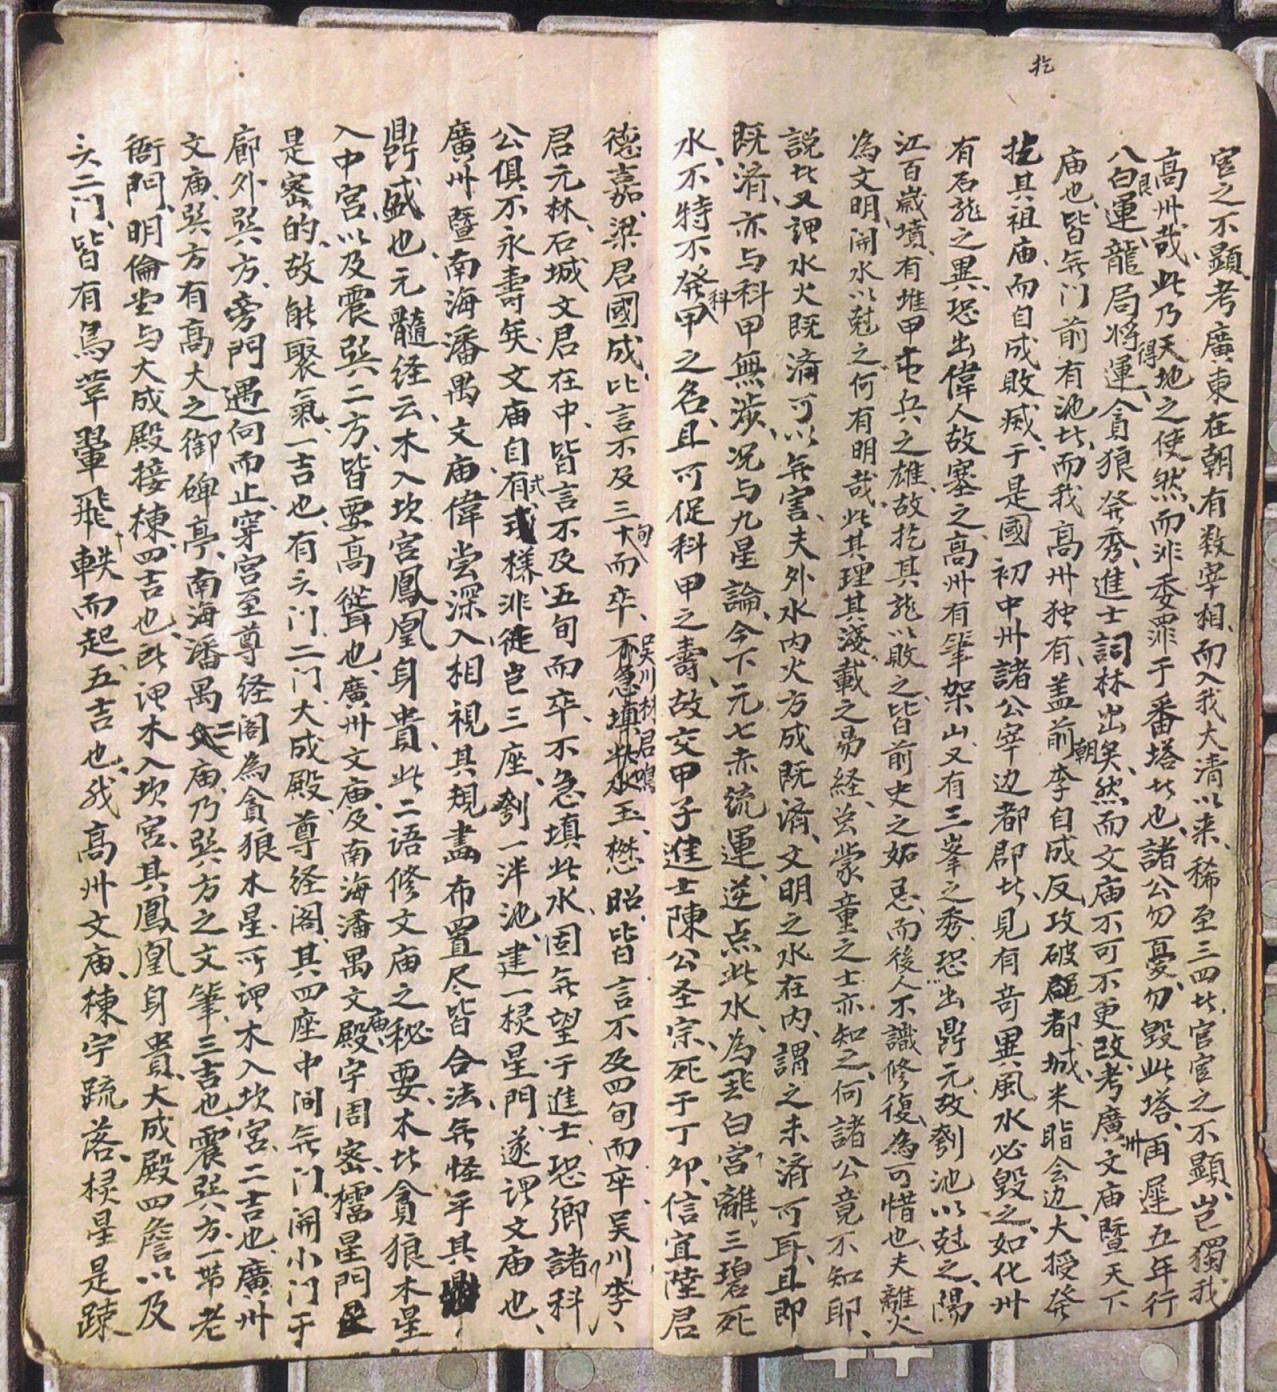 挖
官之不顯、考廣東在朝有数宰相、而入我大清以来、稀至三四、此官官之不顯、岂獨我
高州哉、此乃天地之使然、而非委罪于番塔此也、諸公勿憂、勿毀此塔、再遲五年行
八白艮運、龍局將得運、貪狼發秀、進士詞林出矣、然而文庙不可不更改、考廣州文庙暨天下
庙也、皆無门前有池此、而我高州独有、盖前朝李自成反、攻破都城、米脂会边大授發
挖其祖庙、而自成敗滅、于是國初中州諸公宰边都郡此、見有奇異風水必毀之、如化州
有石龍之異、恐出偉人故塞之、高州有筆架山、又有三峯之秀、恐出鼎元、故剹池以尅之、陽
江百歲墳、有堆甲屯兵之雄、故挖其龍以敗之、皆前史之妬忌、而後人不識修復、為可惜也、夫離火
為文明、開水以尅之、何有明哉、此其理其淺、載之易経、虽蒙童之士亦知之、何諸公竟不知耶、
説此又謂水火既濟、可以無害、夫外水内火、方成既濟、文明之水在内、謂之未濟可耳、且即
既濟、亦与科甲無涉、况与九星論、今下元七赤統運、逆点此水、為坐白宫離、三碧死
水、不特不發科甲之名、且可促科甲之壽、故交甲子進士陳公圣宗、死于丁卯、信宜陸君
德嘉、梁君國成、此言不及三旬而卒、吴川林君鳴玉、懋昭、皆言不及四旬而卒、吴川李、
君元林、石城文君在中、皆言不及五旬而卒、不急填此水、固無望于進士、恐卿諸科
公俱不永壽矣、文庙自有式樣、非徒岂三座、剹一泮池、建一棂星门、遂谓文庙也、
廣州暨南海潘禺文庙偉、尝深入相視、其規畫布置尽皆合法、無怪乎其
鼎盛也、元髓経云、木入坎宫鳳凰身貴、此二语修文庙之秘要、木此貪狼木星
入中宫、以及震巽二方、皆要高聳也、廣州文庙及南海潘禺文庙殿宇周密、櫺星门
是密的、故能聚氣、一吉也、有头门、二门、大成殿、尊経阁、其四座中间無门、開小门于
廊外巽方、旁門遇向而止、穿宫至尊経阁為貪狼木星、所谓木入坎宫、二吉也、廣州
文庙、巽方有高大之御碑亭、南海潘禺二庙、乃巽方之文筆、三吉也、震巽方一带老
衙門、明倫堂与大成殿接棟、四吉也、所谓木入坎宫、其鳳凰身貴、大成殿四詹以及
头二门、皆有鳥革翬飛、軼而起、五吉也、我高州文庙、棟宇疏落、棂星是踈